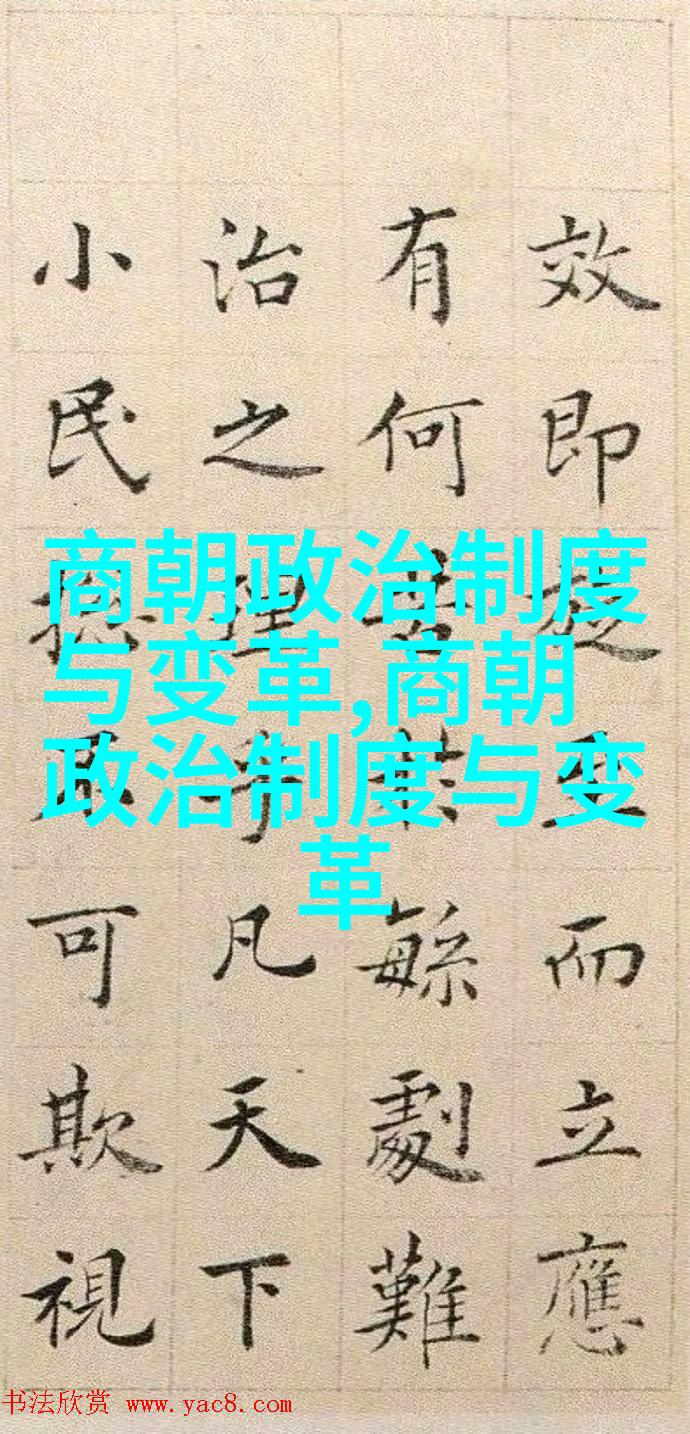 效即而立應
有何緐劇難
治之理凡天下
小民可欺視
商朝政治制度
与变革,商朝
政治制度与变
革
书法欣赏 www.yac8.com